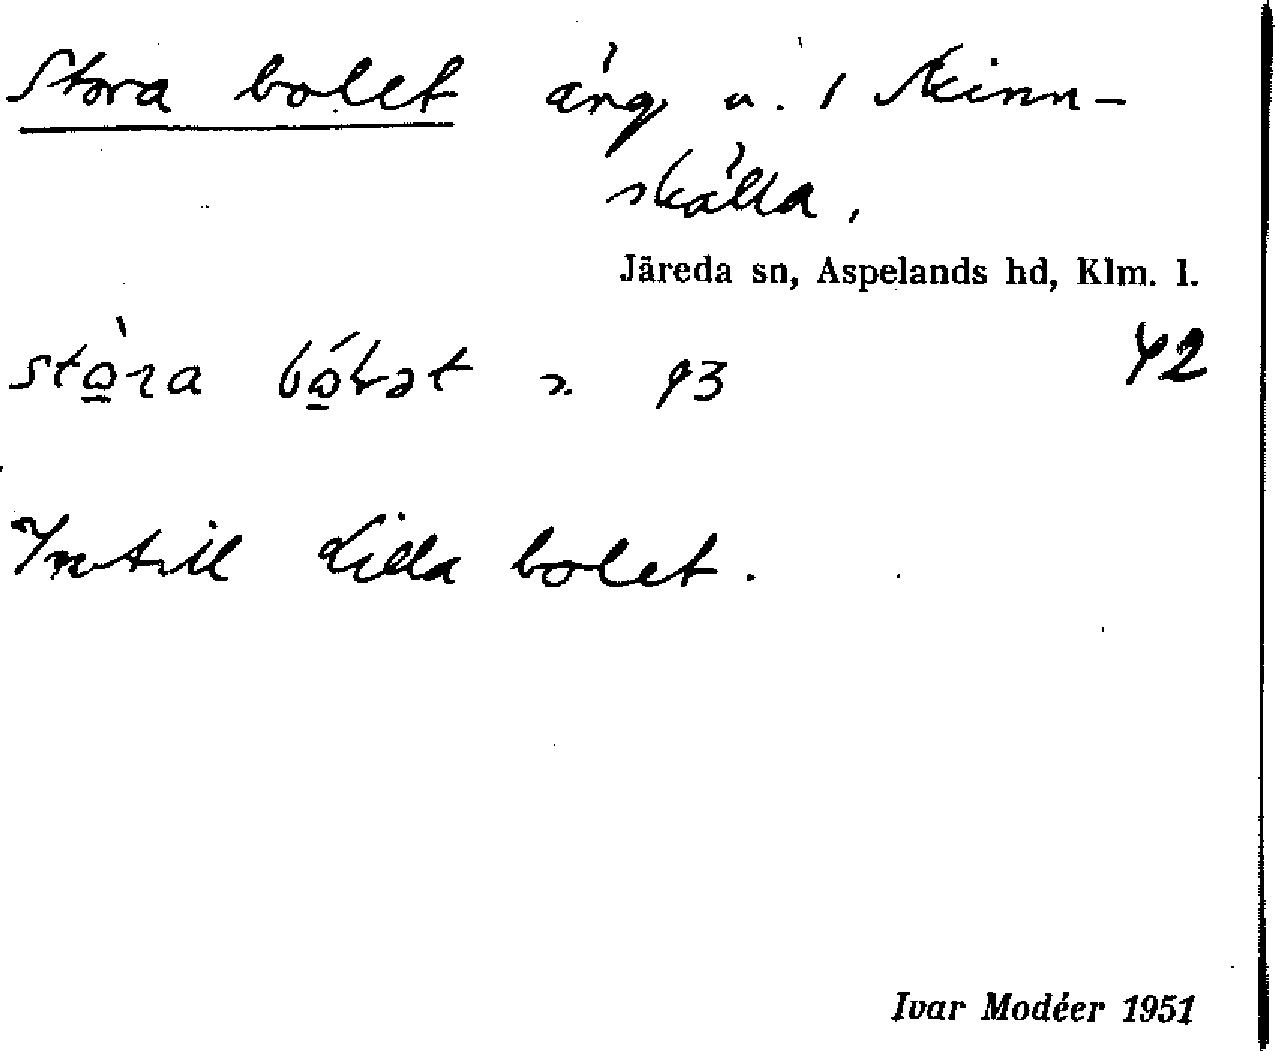 Stora bolet äng u. 1 Skinn-
skälla.
Järeda sn, Aspelands hd, Klm. l.
42
Intill Lilla bolet.
Ivar Modéer 1951